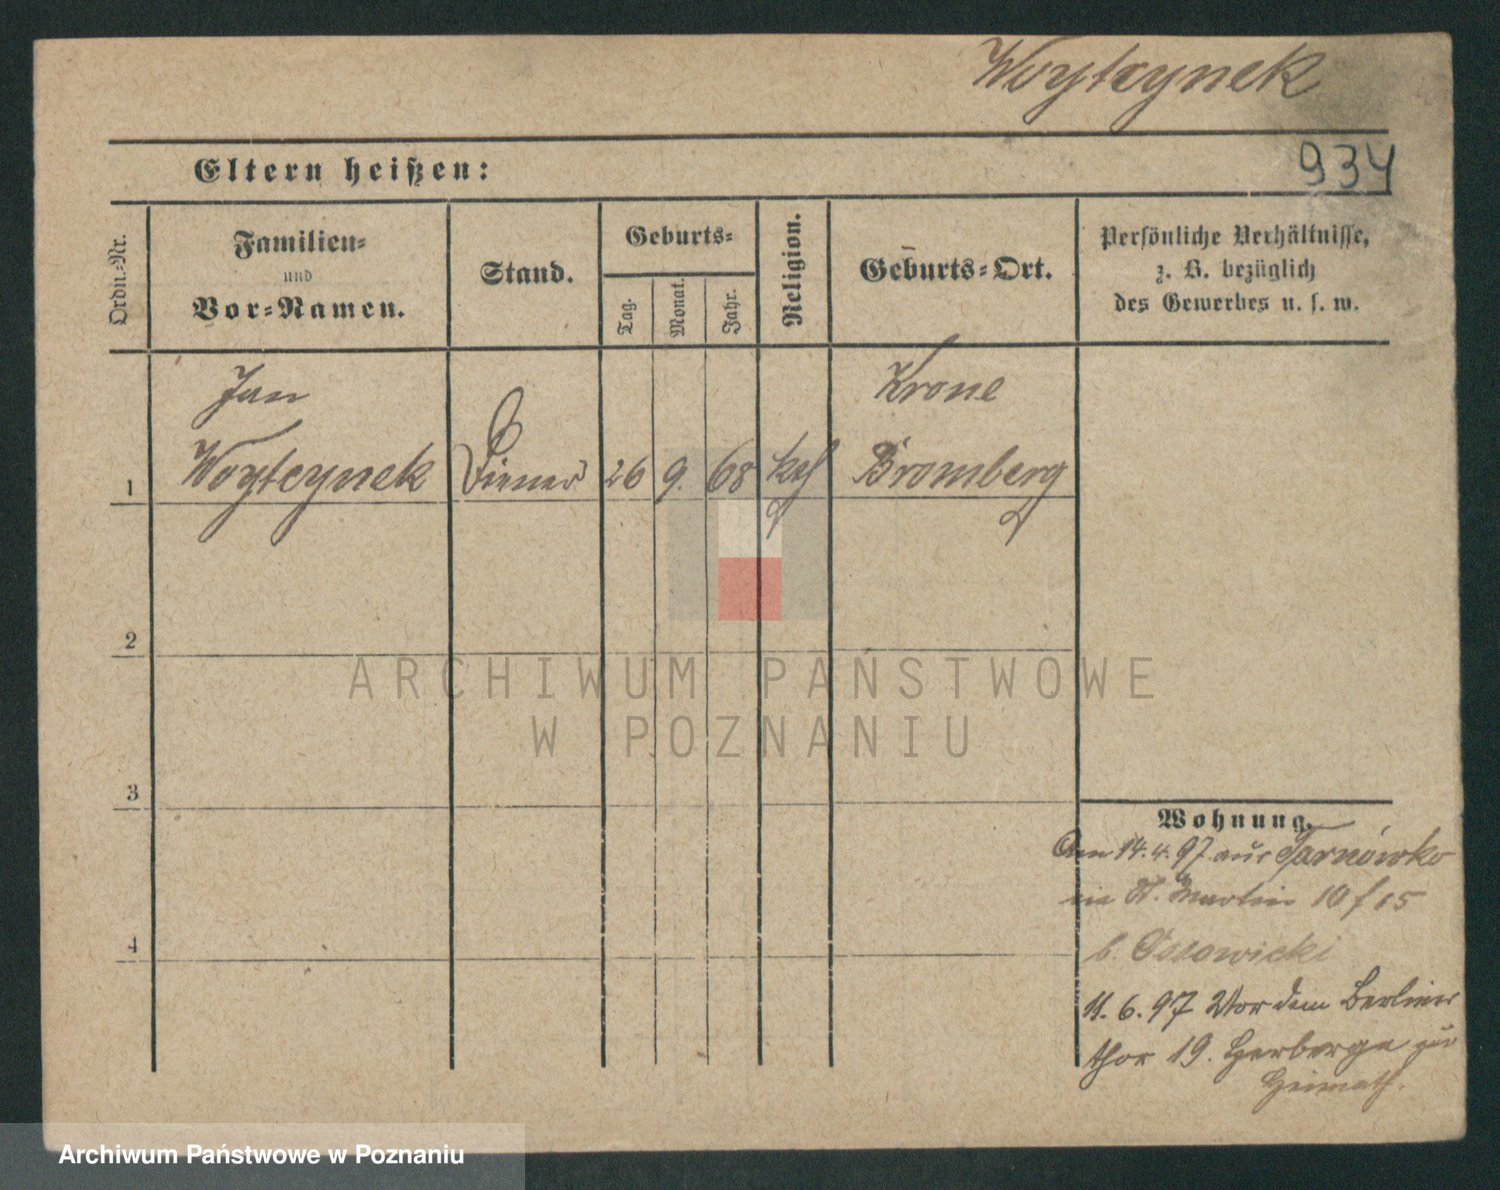 Woytcynek
934
Eltern heißen:
Ordn.=Nr.
Familien=
und
Vor=Namen.
Stand.
Geburts=
Tag.
Monat.
Jahr.
Religion.
Geburts=Ort.
Persönliche Verhältnisse,
z. B. bezüglich
des Gewerbes u. s. w.
Jan
Krone
1 Woytcynek Diener 26 9. 68 kath Bromberg
2
ARCHIWUM PAŃSTWOWE
W POZNANIU
3
Wohnung.
Am 14.4.97 aus Tarnówko
in St. Martin 10 f 15
4
b. Ossowicki
11.6.97 Vor dem Berliner
thor 19. Herberge zur
Heimath.
Archiwum Państwowe w Poznaniu